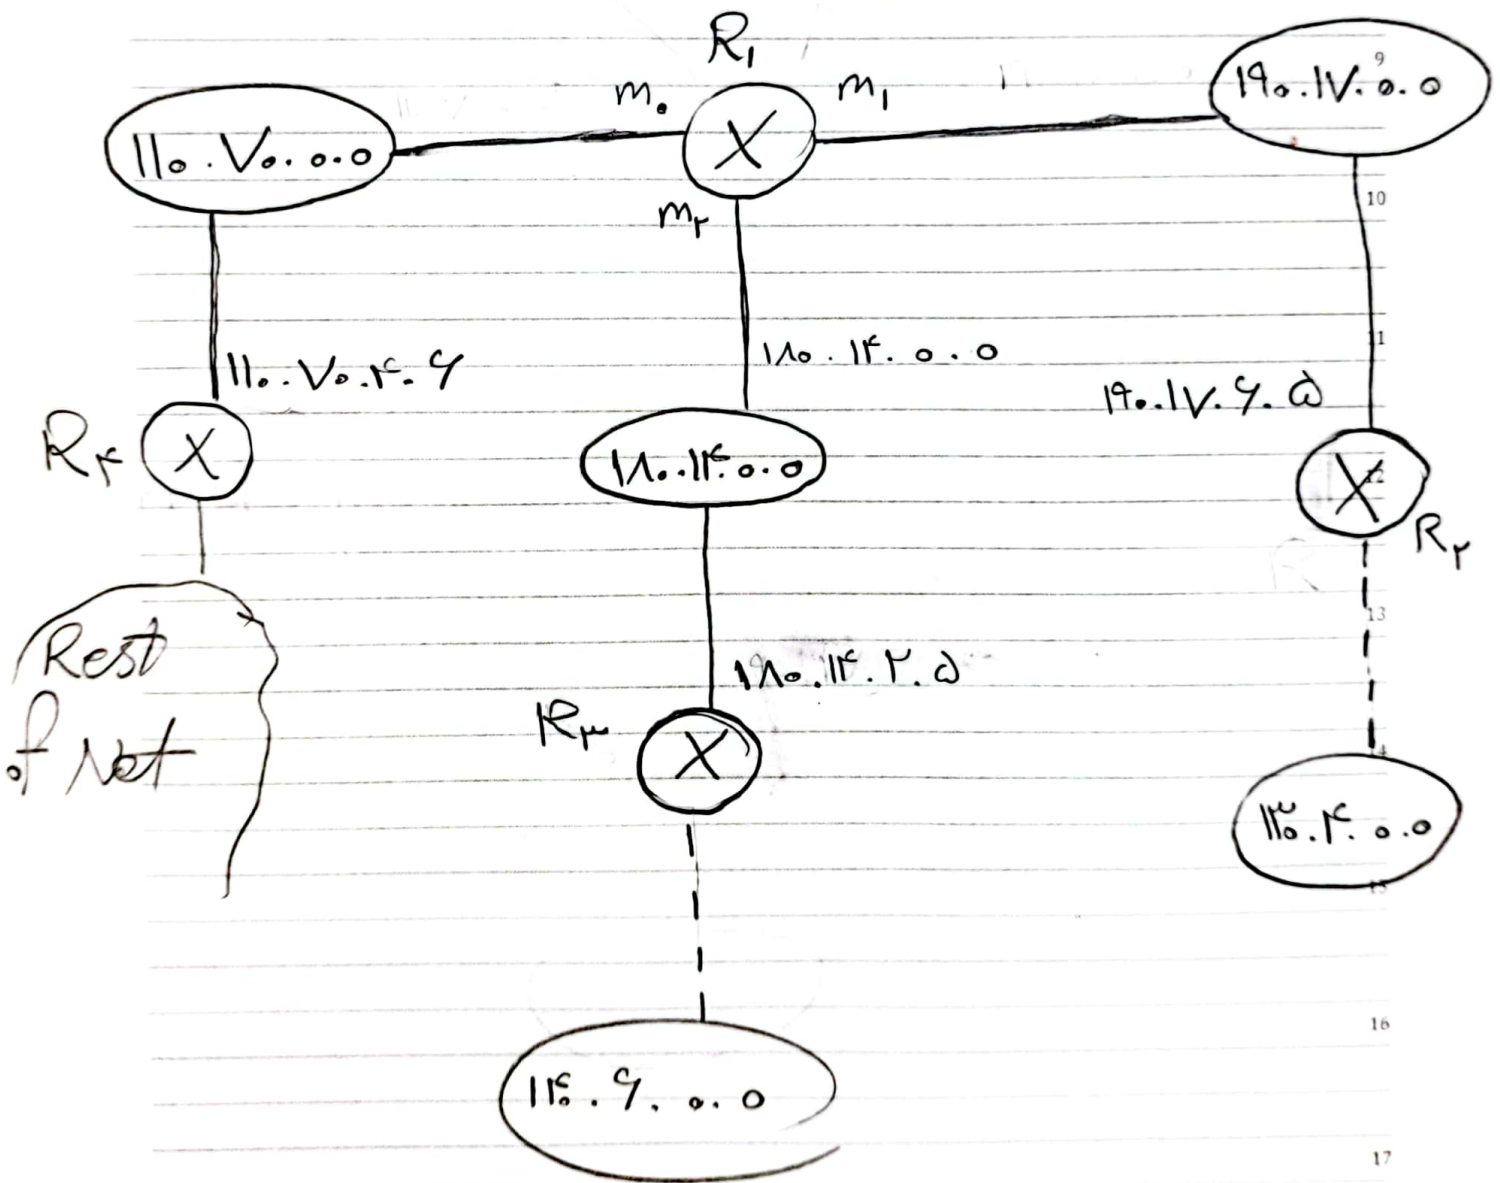 R۱
m۰
m۱
۱۹۰.۱۷.۰.۰
9
۱۱۰.۷۰.۰.۰
X
m۲
10
11
۱۱۰.۷۰.۴.۶
۱۸۰.۱۴.۰.۰
۱۹۰.۱۷.۶.۵
R۴
X
۱۸۰.۱۴.۰.۰
X
12
R۲
13
Rest
of Net
۱۸۰.۱۴.۲.۵
R۳
X
14
۱۳۰.۴.۰.۰
15
16
۱۴۰.۶.۰.۰
17